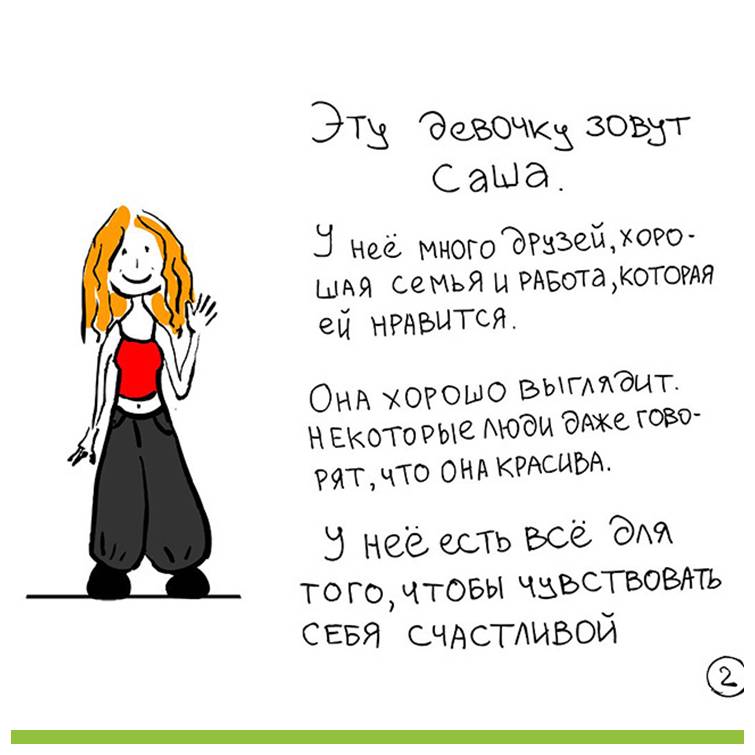 Эту девочку зовут
Саша.
У неё много друзей, хоро-
шая семья и работа, которая
ей нравится.
Она хорошо выглядит.
Некоторые люди даже гово-
рят, что она красива.
У неё есть всё для
того, чтобы чувствовать
себя счастливой
2